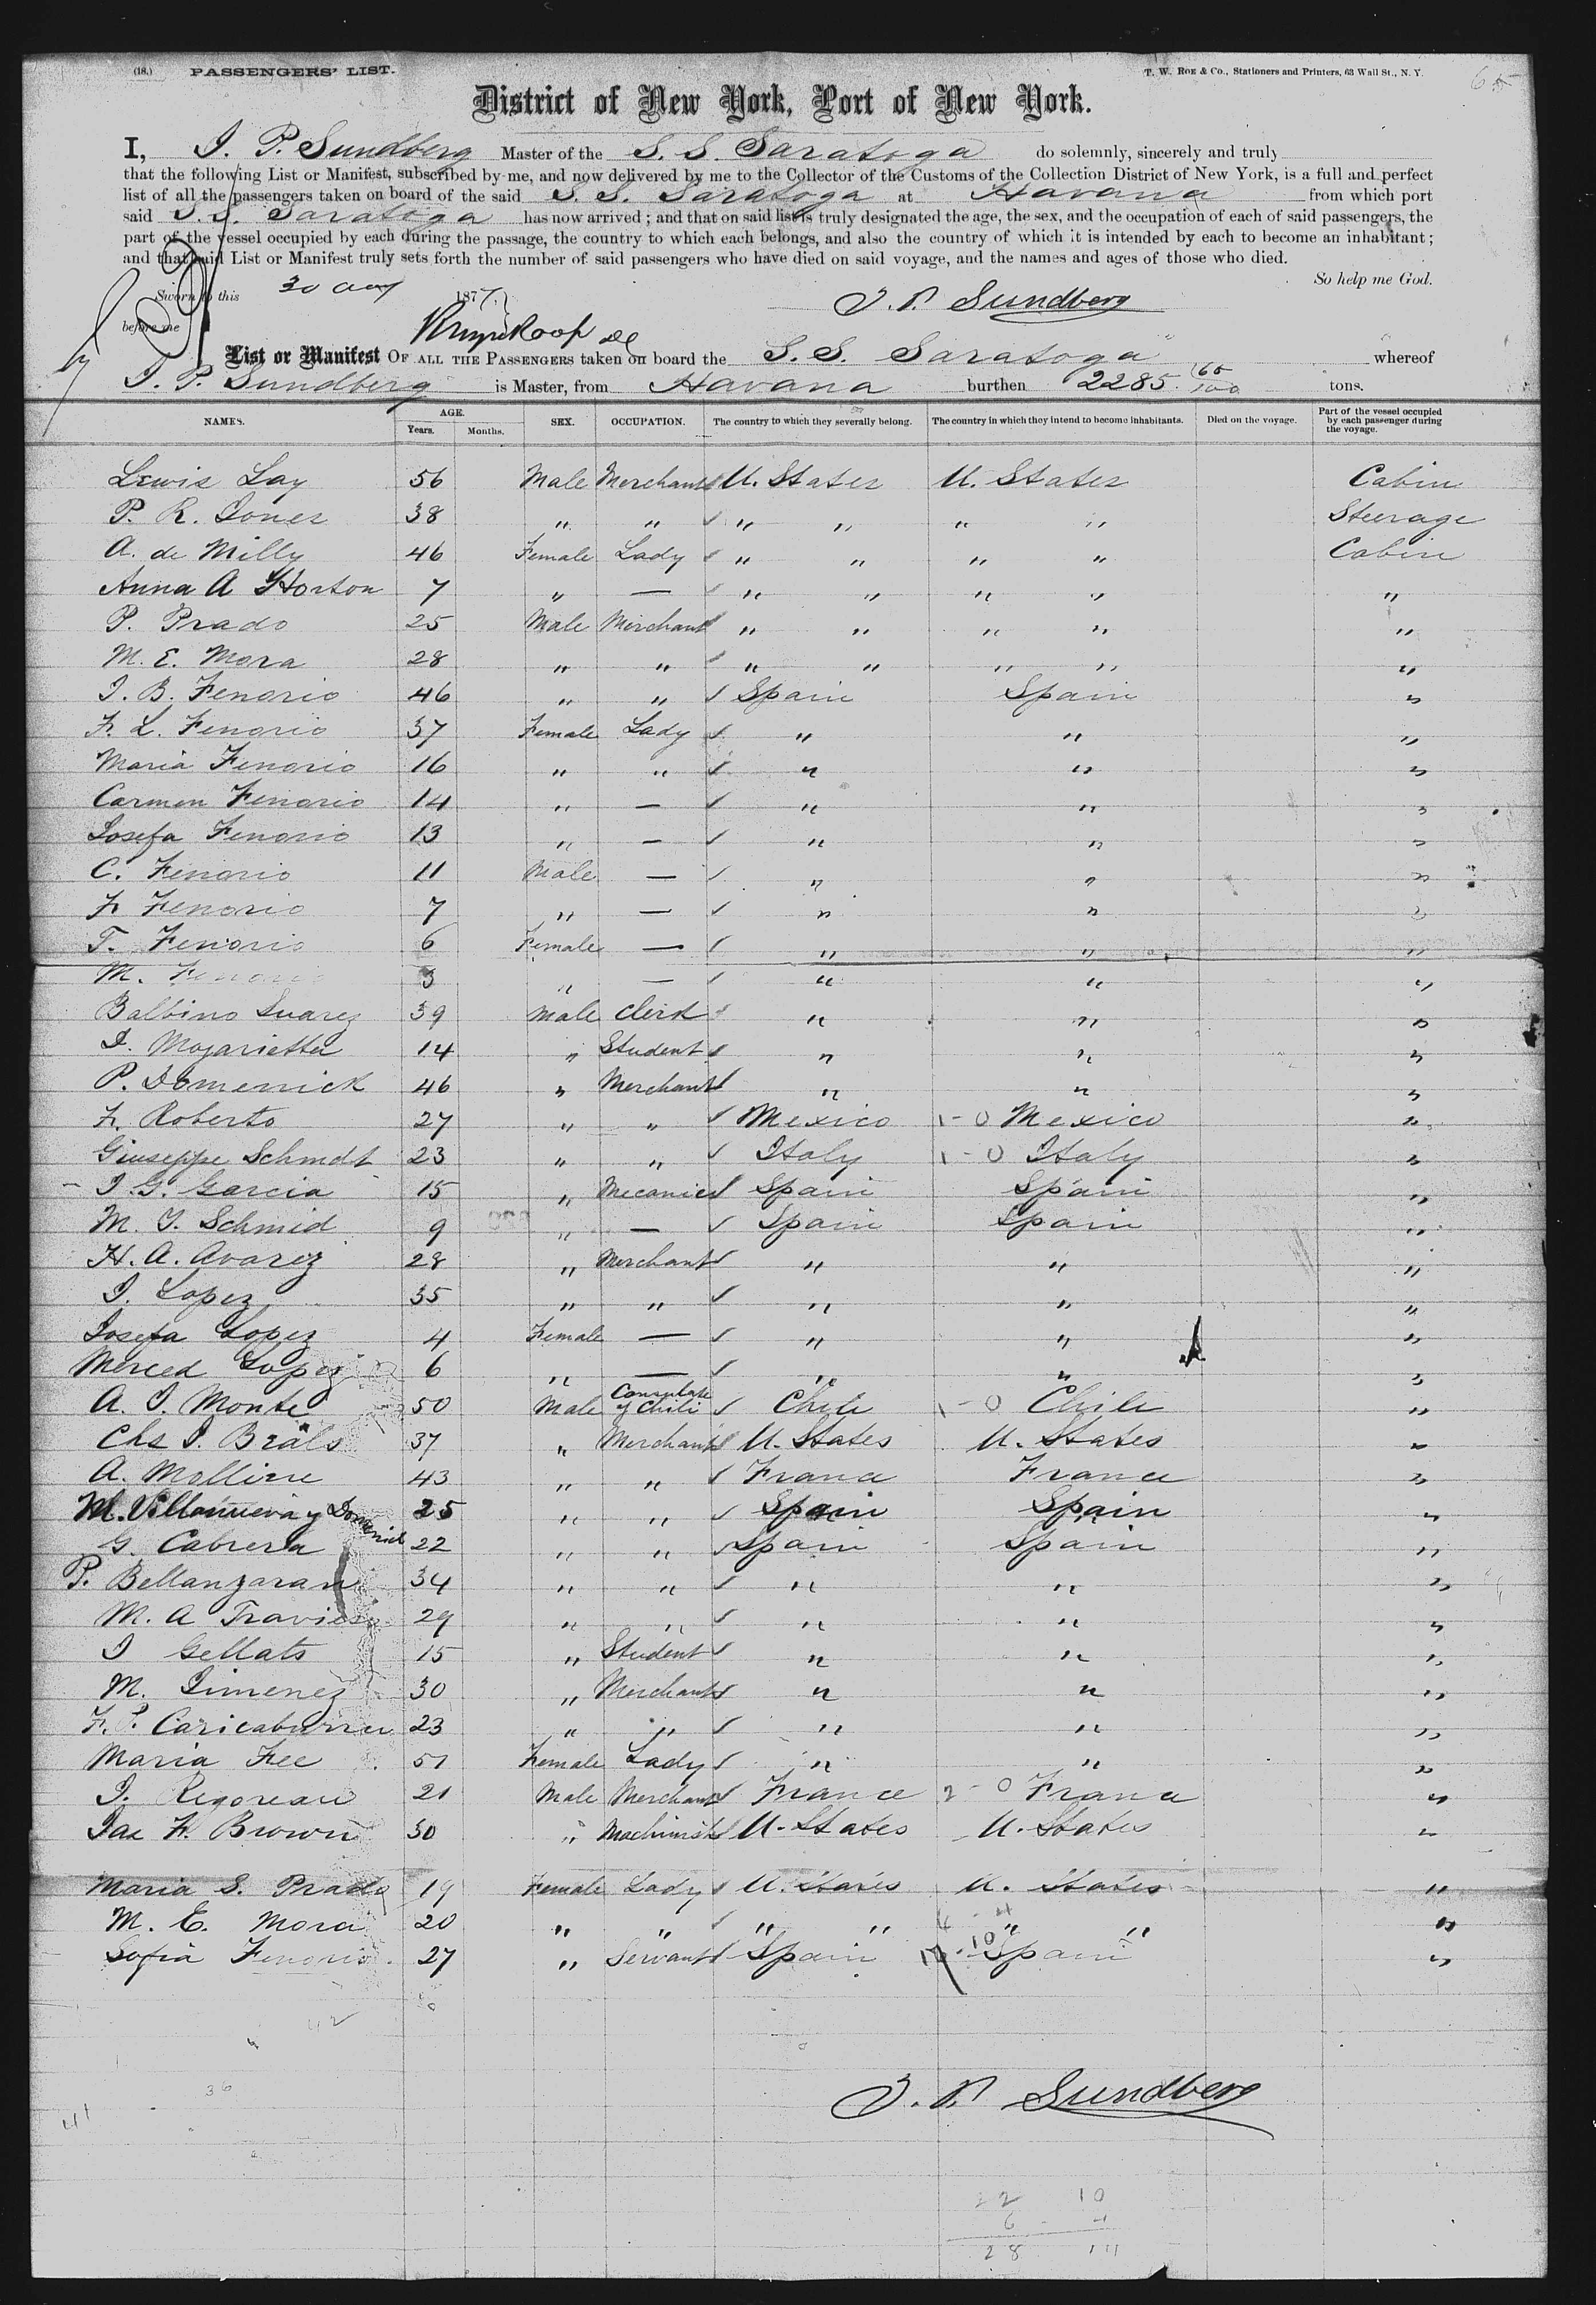 (18.) PASSENGERS' LIST. T. W. ROE & Co., Stationers and Printers, 63 Wall St., N. Y. 65
District of New York, Port of New York.
I, J. P. Sundberg Master of the S. S. Saratoga do solemnly, sincerely and truly
that the following List or Manifest, subscribed by me, and now delivered by me to the Collector of the Customs of the Collection District of New York, is a full and perfect
list of all the passengers taken on board of the said S. S. Saratoga at Havana from which port
said S. S. Saratoga has now arrived; and that on said list is truly designated the age, the sex, and the occupation of each of said passengers, the
part of the vessel occupied by each during the passage, the country to which each belongs, and also the country of which it is intended by each to become an inhabitant;
and that said List or Manifest truly sets forth the number of said passengers who have died on said voyage, and the names and ages of those who died.
So help me God.
Sworn to this 30 Aug 1877. J. P. Sundberg
before me
List or Manifest OF ALL THE PASSENGERS taken on board the S. S. Saratoga whereof
J. P. Sundberg is Master, from Havana burthen 2285 65/100 tons.
NAMES. AGE. Years. Months. SEX. OCCUPATION. The country to which they severally belong. The country in which they intend to become inhabitants. Died on the voyage. Part of the vessel occupied by each passenger during the voyage.
Lewis Lay 56 Male Merchant U. States U. States Cabin
P. R. Jones 38 " " " " " " Steerage
A. de Milly 46 Female Lady " " " " Cabin
Anna A Horton 7 " — " " " " "
P. Prado 25 Male Merchant " " " " "
M. E. Mora 28 " " " " " " "
J. B. Fenorio 46 " " Spain Spain "
F. L. Fenorio 37 Female Lady " " "
Maria Fenorio 16 " " " " "
Carmen Fenorio 14 " — " " "
Josefa Fenorio 13 " — " " "
C. Fenorio 11 Male — " " "
F Fenorio 7 " — " " "
T. Fenorio 6 Female — " " "
M. Fenorio 3 " — " " "
Balbino Suarez 39 Male Clerk " " "
J. Mozarietta 14 " Student " " "
P. Domenick 46 " Merchant " " "
F. Roberto 27 " " Mexico Mexico "
Giuseppe Schmdt 23 " " Italy Italy "
J. G. Garcia 15 " Mecanic Spain Spain "
M. J. Schmid 9 " — Spain Spain "
H. A. Avarez 28 " Merchant " " "
J. Lopez 35 " " " " "
Josefa Lopez 4 Female — " " "
Merced Lopez 6 " — " " "
A. J. Monte 50 Male Consulate of Chili Chile Chile "
Chs J. Brals 37 " Merchant U. States U. States "
A. Mollire 43 " " France France "
M. Villanueva y Domenick 25 " " Spain Spain "
G. Cabrera 22 " " Spain Spain "
P. Bellanzaran 34 " " " " "
M. A Travieso 29 " " " " "
J Gellats 15 " Student " " "
M. Jimenez 30 " Merchant " " "
F. P. Caricaburru 23 " " " " "
Maria Fee 51 Female Lady " " "
J. Rigoreau 21 Male Merchant France France "
Jas F. Brown 30 " Machinist U. States U. States "
Maria S. Prado 19 Female Lady U. States U. States "
M. E. Mora 20 " " " " " " "
Sofia Fenorio 27 " Servant Spain Spain "
42
36
41
J. P. Sundberg
22 10
6 4
28